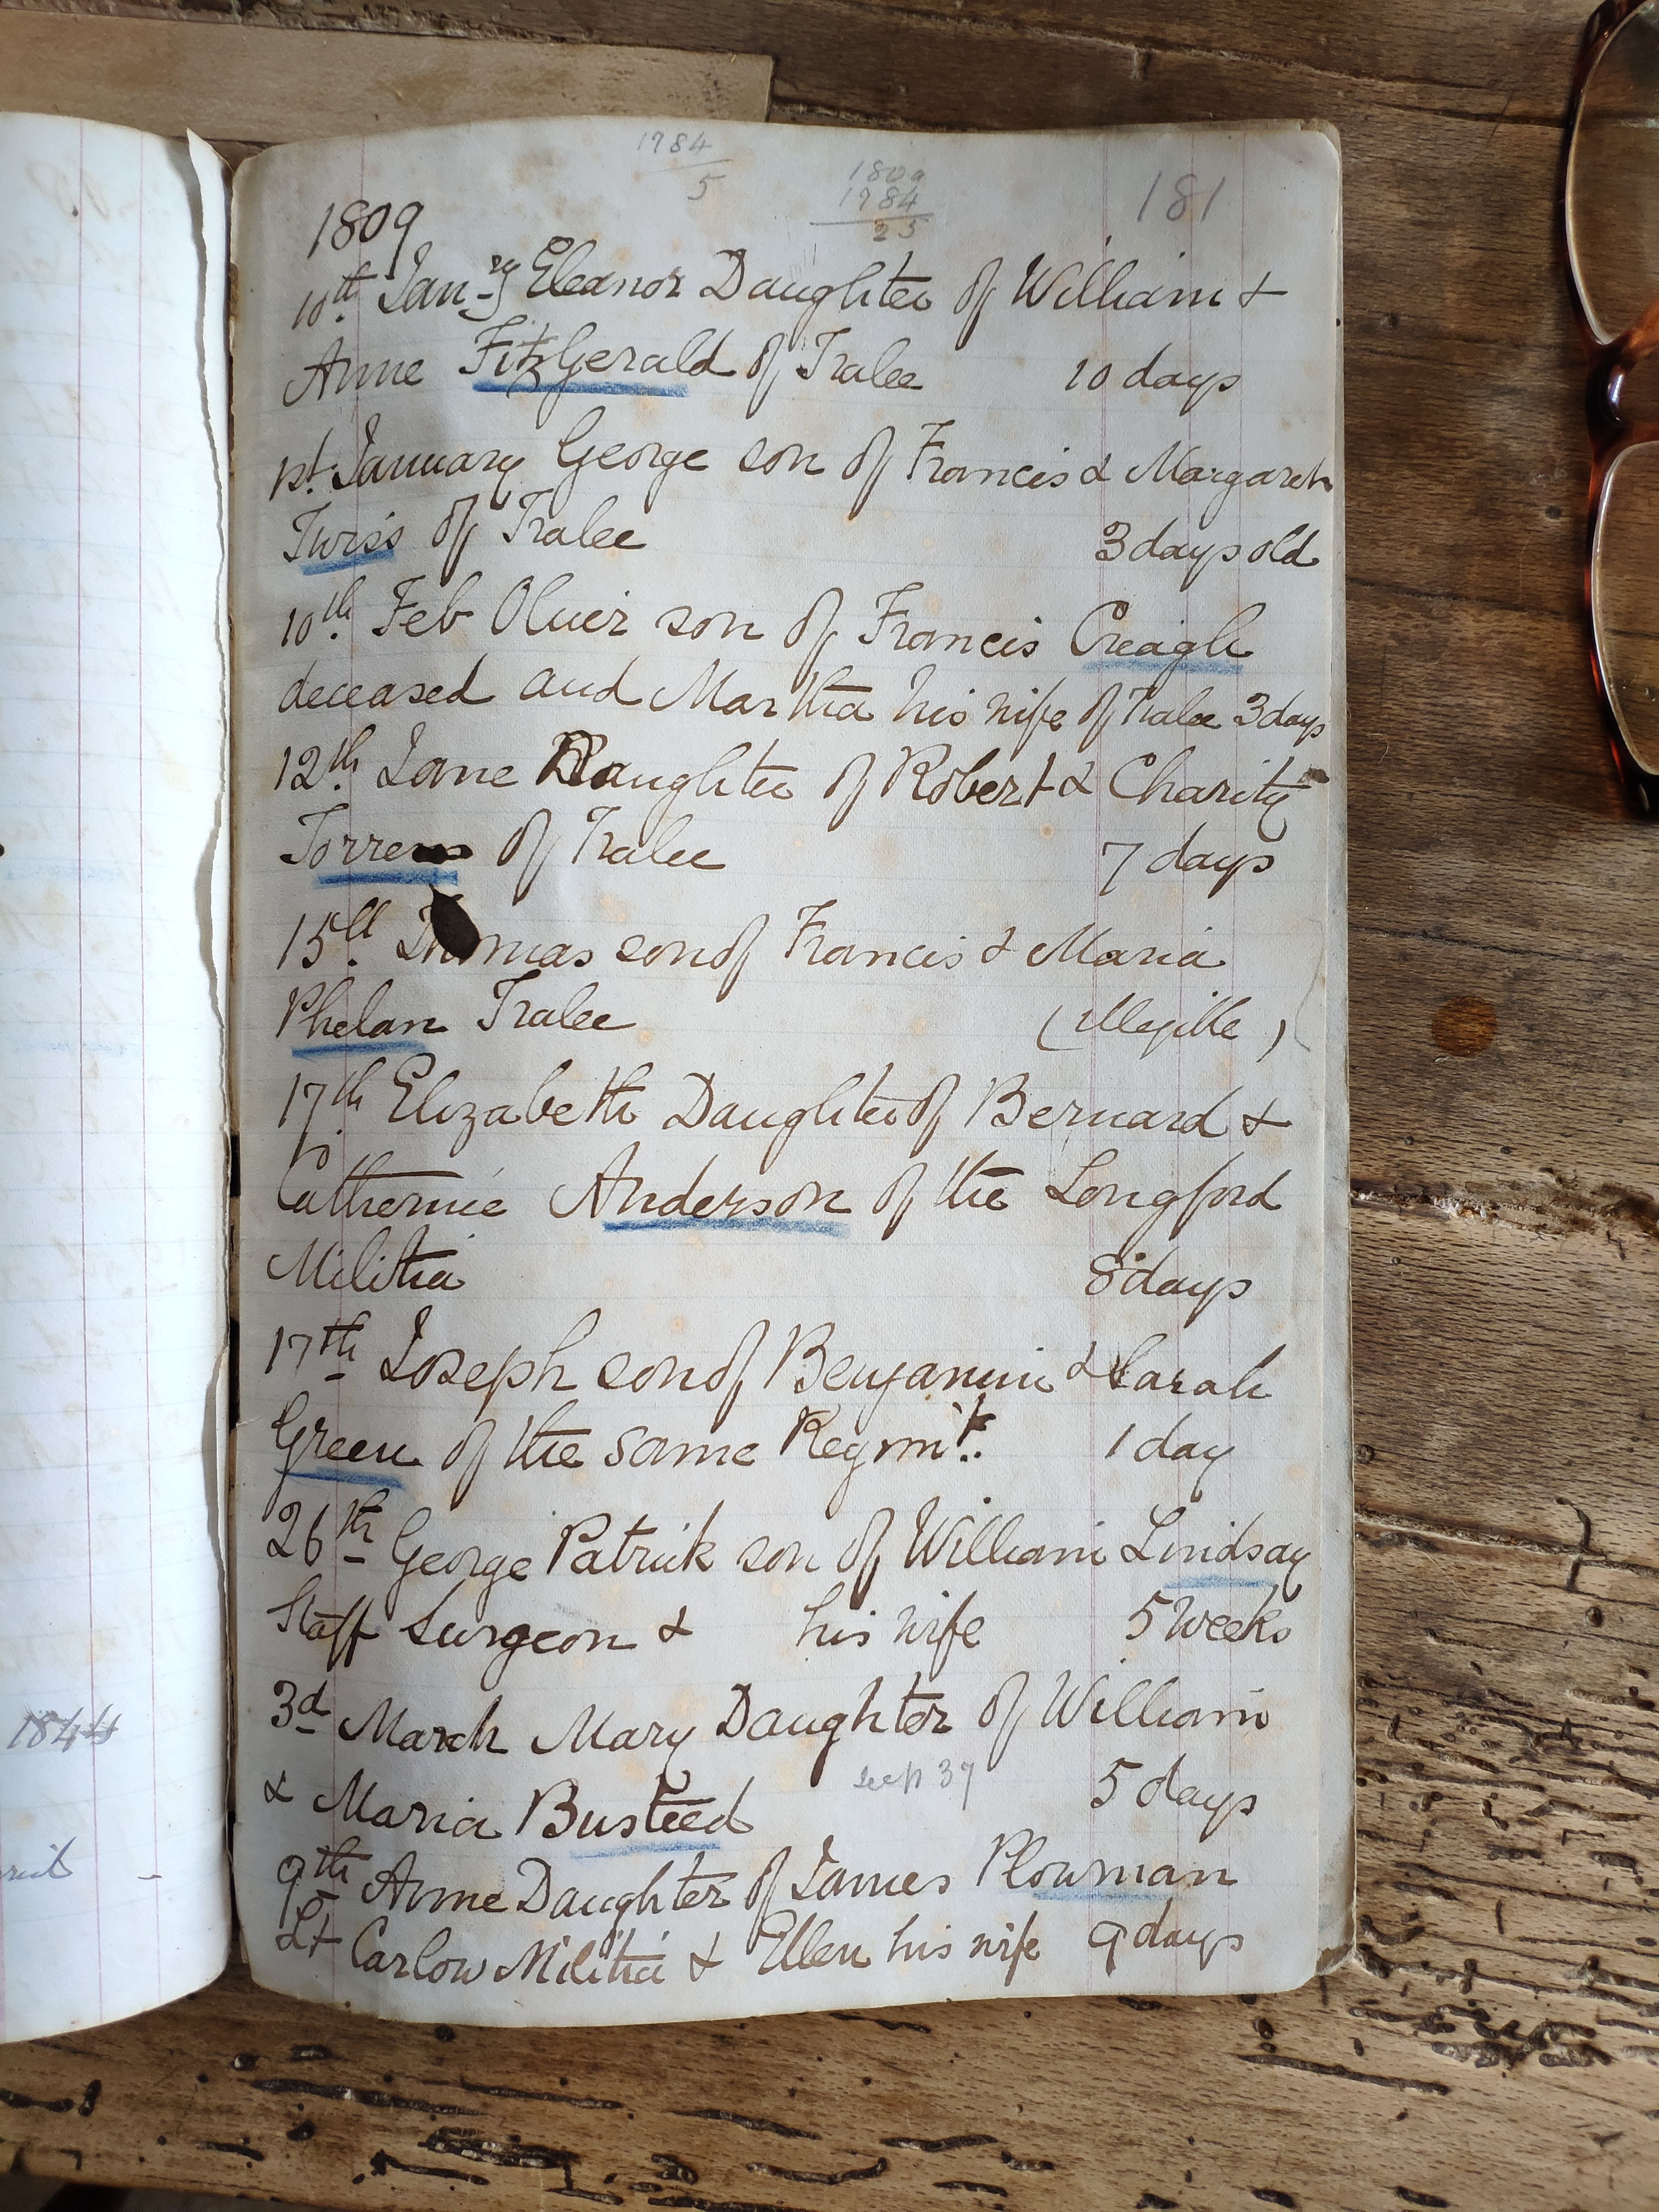 1784
5
1809
1784
25
181
1809
10th Jan-ry Eleanor Daughter of William &
Anne FitzGerald of Tralee 10 days
1st January George son of Francis & Margaret
Twiss of Tralee 3 days old
10th Feb Oliver son of Francis Creagh
deceased and Martha his wife of Tralee 3 days
12th Jane Daughter of Robert & Charity
Torrens of Tralee 7 days
15th Thomas son of Francis & Maria
Phelan Tralee (Illegible)
17th Elizabeth Daughter of Bernard &
Catherine Anderson of the Longford
Militia 8 days
17th Joseph son of Benjamin & Sarah
Green of the same Regmt. 1 day
26th George Patrick son of William Lindsay
Staff Surgeon & his wife 5 Weeks
3d March Mary Daughter of William
& Maria Busteed 5 days
9th Anne Daughter of James Plowman
Lt Carlow Militia & Ellen his wife 9 days
1844